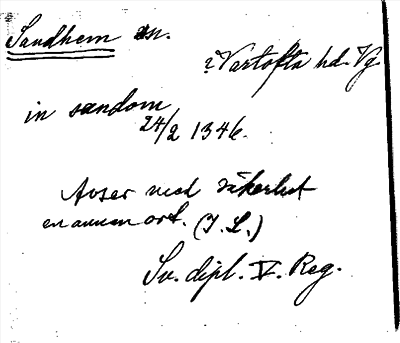 Sandhem sn.
? Vartofta hd. Vg.
in sandom
24/2 1346.
Avser med säkerhet
en annan ort. (I. L.)
Sv. dipl. V. Reg.